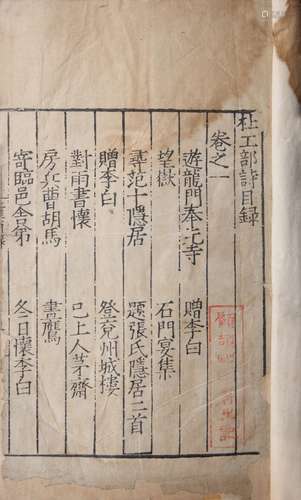 杜工部詩目錄
卷之一
遊龍門奉先寺 贈李白
望嶽 石門宴集
尋范十隱居 題張氏隱居二首
贈李白 登兗州城樓
對雨書懷 巳上人茅齋
房兵曹胡馬 畫鷹
寄臨邑舍弟 冬日懷李白